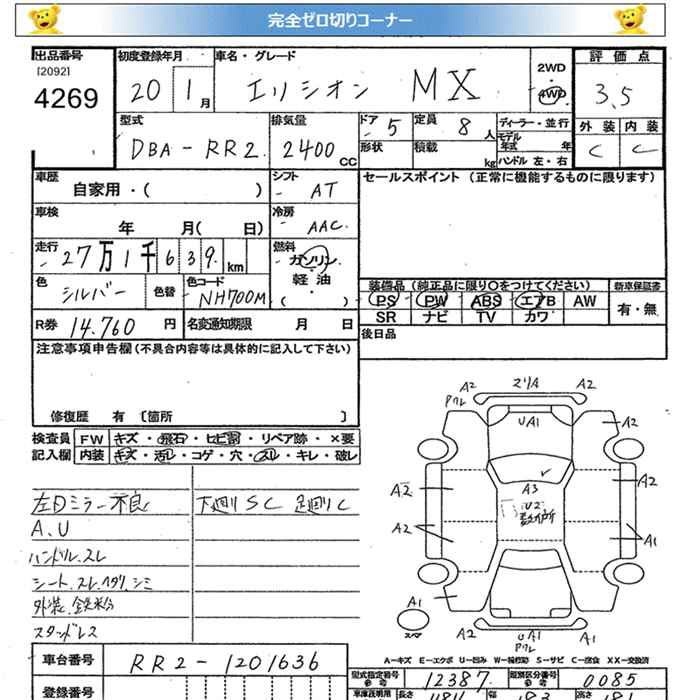 完全ゼロ切りコーナー
出品番号
[2092]
4269
初度登録年月
20 1月
車名・グレード
エリシオン MX
2WD
4WD
評価点
3.5
外装 内装
C C
型式
DBA-RR2
排気量
2400cc
ドア
5
形状
定員
8人
積載
kg
ディーラー・並行
モデル年式 年
ハンドル 左・右
車歴
自家用・( )
シフト
AT
車検
年 月( 日)
冷房
AAC
走行
27万1千639km
燃料
ガソリン
軽油
( )
色
シルバー
色替
色コード
NH700M
R券
14.760円
名変通知期限 月 日
セールスポイント (正常に機能するものに限ります)
装備品 (純正品に限り○をつけてください)
PS PW ABS エアB AW
SR ナビ TV カワ
新車保証書
有・無
後日品
注意事項申告欄(不具合内容等は具体的に記入して下さい)
修復歴 有 〔箇所 〕
検査員記入欄
FW キズ・飛石・ヒビ割・リペア跡・×要
内装 キズ・汚レ・コゲ・穴・スレ・キレ・破レ
左Dミラー不良 下廻りSC 足廻りC
A.U
ハンドル.スレ
シート.スレ.ヘタリ.シミ
外装.鉄粉
スタッドレス
A2 マリA A2
Pクレ
UA1
A2
A3
U2
数ヶ所
A2
A2
A2
A1
A1
スペア
A2 UA1 A1
Pクレ
A-キズ E-エクボ U-凹み W-補修跡 S-サビ C-腐食 XX-交換済
車台番号
RR2-1201636
登録番号
型式指定番号
参考
12387
類別区分番号
参考
0085
車庫証明用
長さ
幅
高さ